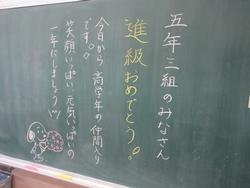 五年三組のみなさん
進級おめでとう。
今日から高学年の仲間入り
です。
笑顔いっぱい元気いっぱいの
一年にしましょう